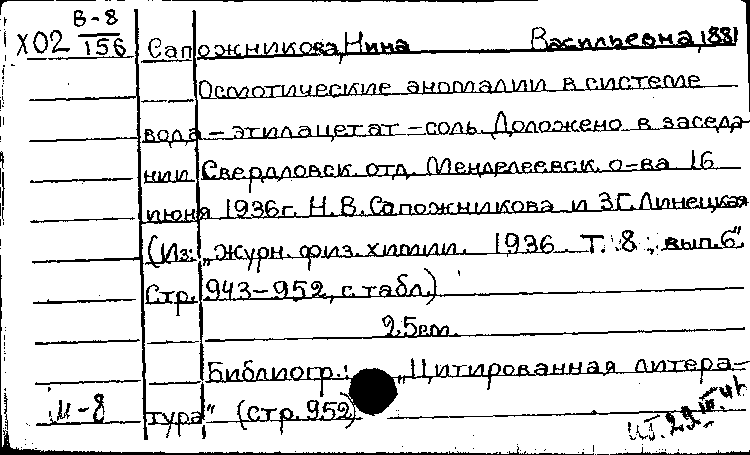 В-8
Х02 156 Сапожникова, Нина Васильевна, 1881
Осмотические аномалии в системе
вода – этилацетат – соль. Доложено в заседа-
нии Свердловск. отд. Менделеевск. о-ва 16
июня 1936г. Н.В. Сапожникова и З.Г. Линецкая
(Из: „Журн. физ. химии. 1936. Т. 8, вып. 6".
Стр. 943-952, с табл.)
25см.
Библиогр.: „Цитированная литера-
М-8 тура" (стр. 952)